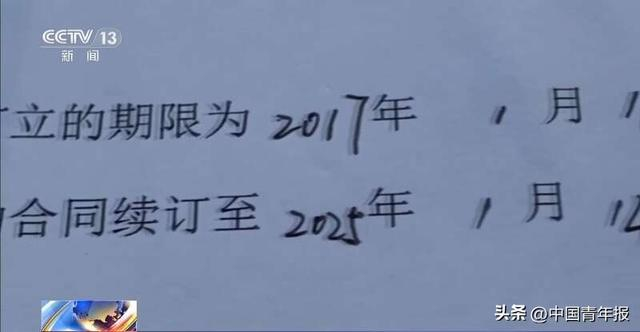 CCTV 13
新闻
立的期限为2017年 1月1
合同续订至2025年 1月
头条@中国青年报